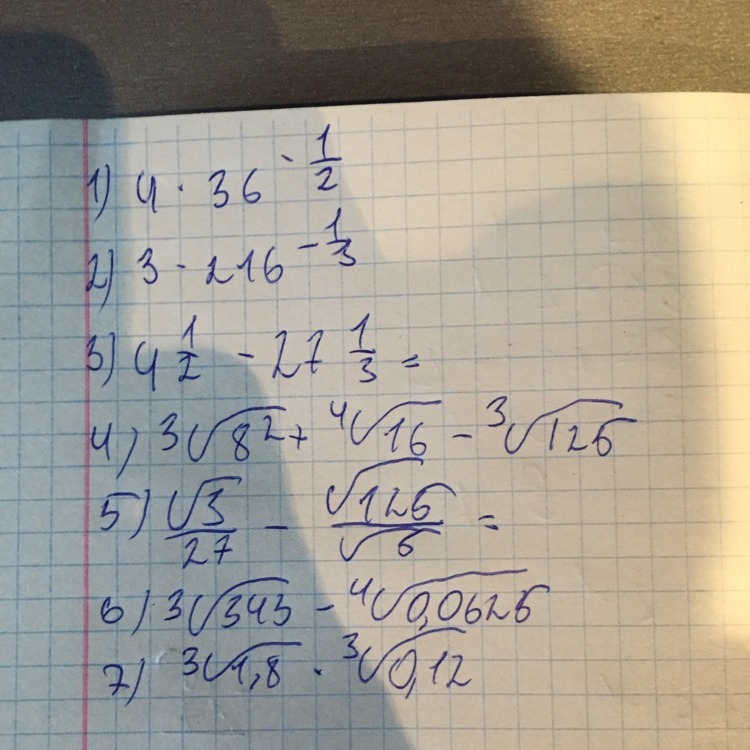 1) 4 · 36^{-\frac{1}{2}}
2) 3 - 216^{-\frac{1}{3}}
3) 4\frac{1}{2} - 27\frac{1}{3} =
4) \sqrt[3]{8^2} + \sqrt[4]{16} - \sqrt[3]{125}
5) \frac{\sqrt{3}}{27} - \frac{\sqrt{125}}{\sqrt{5}} =
6) \sqrt[3]{343} - \sqrt[4]{0,0625}
7) \sqrt[3]{1,8} · \sqrt[3]{0,12}